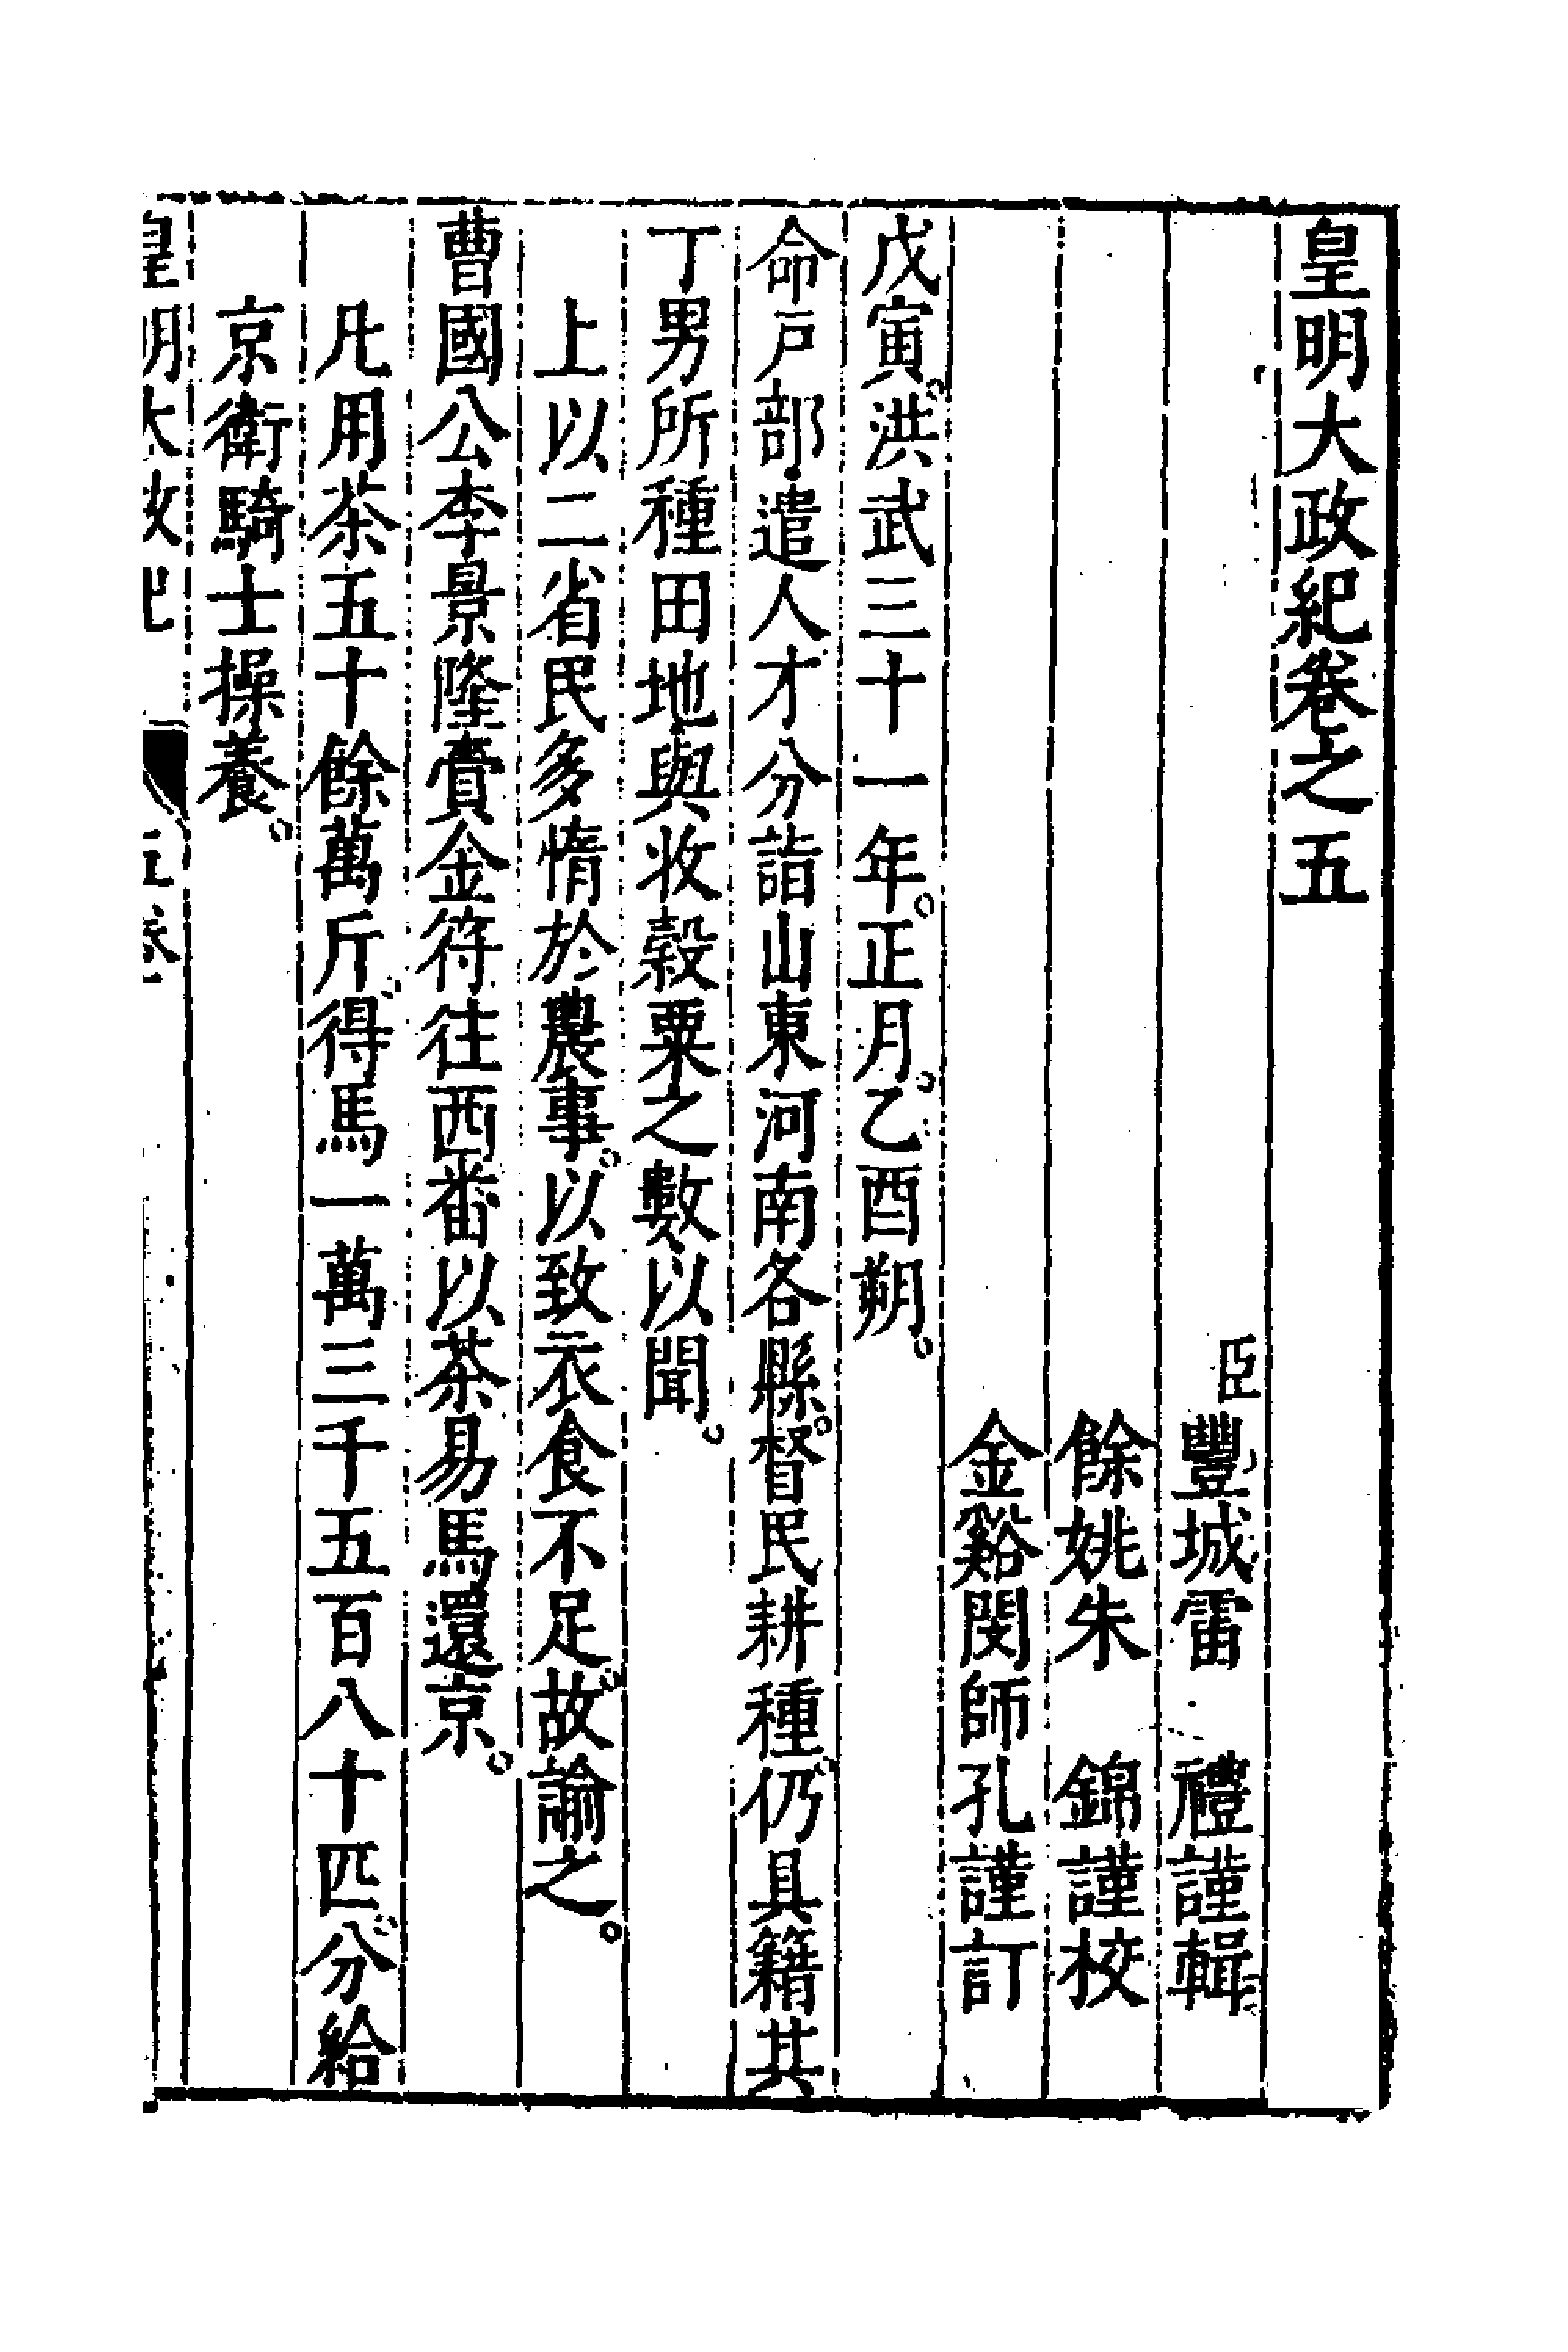 皇明大政紀卷之五
臣豐城雷　禮謹輯
餘姚朱　錦謹校
金谿閔師孔謹訂
戊寅。洪武三十一年。正月。乙酉朔。
命戶部遣人才分詣山東河南各縣。督民耕種。仍具籍其
丁男所種田地與收穀粟之數以聞。
上以二省民多惰於農事。以致衣食不足。故諭之。
曹國公李景隆賫金符往西番以茶易馬還京。
凡用茶五十餘萬斤。得馬一萬三千五百八十匹。分給
京衛騎士操養。
皇明大政紀　五卷　一